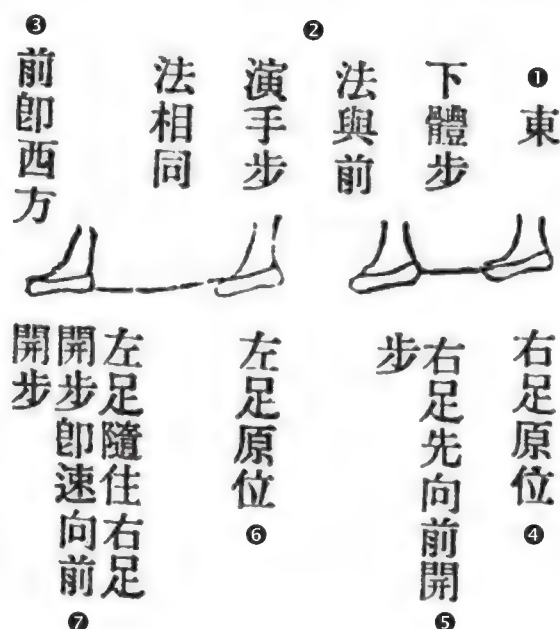 ❶
東
❷
下體步
法與前
演手步
法相同
❸
前卽西方
右足原位
❹
右足先向前開
步
❺
左足原位
❻
左足隨住右足
開步卽速向前
開步
❼